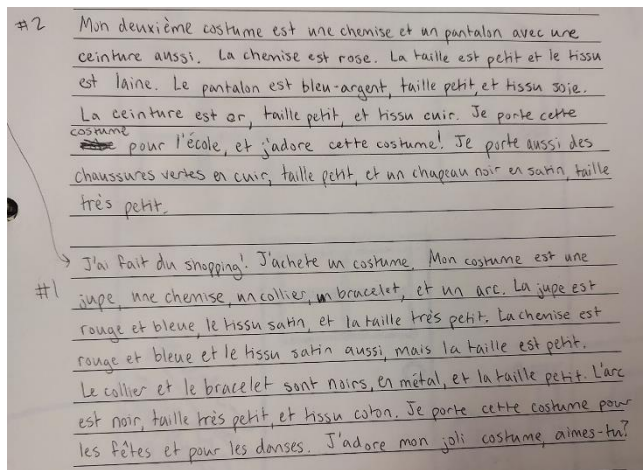 #2 Mon deuxième costume est une chemise et un pantalon avec une
ceinture aussi. La chemise est rose. La taille est petit et le tissu
est laine. Le pantalon est bleu-argent, taille petit, et tissu soie.
La ceinture est or, taille petit, et tissu cuir. Je porte cette
costume pour l'école, et j'adore cette costume! Je porte aussi des
chaussures vertes en cuir, taille petit, et un chapeau noir en satin, taille
très petit.
J'ai fait du shopping! J'achete un costume. Mon costume est une
#1 jupe, une chemise, un collier, un bracelet, et un arc. La jupe est
rouge et bleue, le tissu satin, et la taille très petit. La chemise est
rouge et bleue et le tissu satin aussi, mais la taille est petit.
Le collier et le bracelet sont noirs, en métal, et la taille petit. L'arc
est noir, taille très petit, et tissu coton. Je porte cette costume pour
les fêtes et pour les danses. J'adore mon joli costume, aimes-tu?